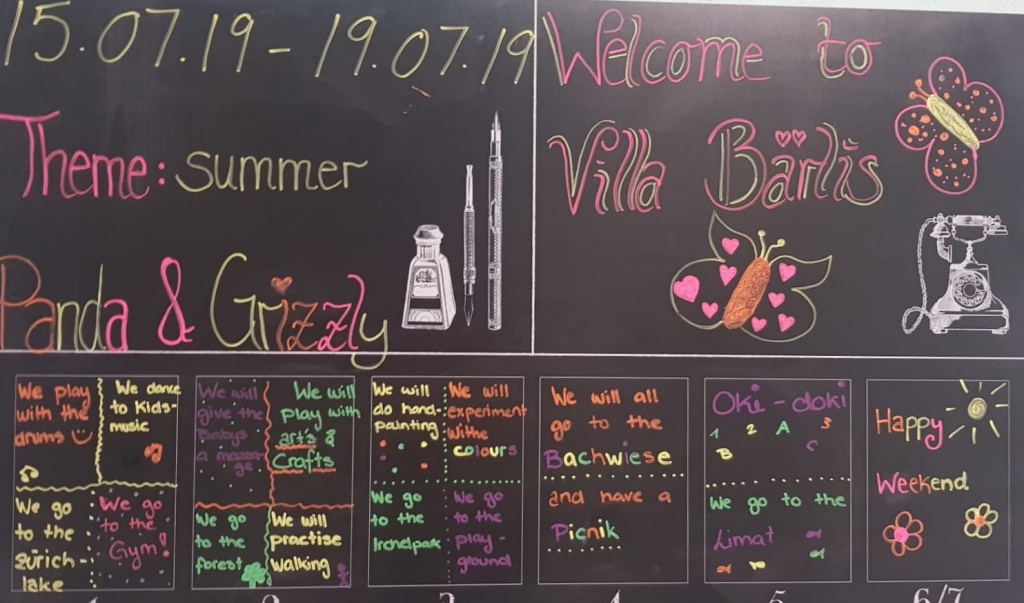 15.07.19 - 19.07.19
Theme: summer
Panda & Grizzly
Welcome to
Villa Bärlis
We play
with the
drums
We dance
to Kids-
music
We go
to the
Zürich-
lake
We go
to the
Gym!
We will
give the
Babys
a massa-
ge
We will
play with
art's &
Crafts
We go
to the
forest
We will
practise
walking
We will
do hand-
painting
We will
experiment
withe
colours
We go
to the
Irchelpark
We go
to the
play-
ground
We will all
go to the
Bachwiese
and have a
Picnik
Oki-doki
1 2 A 3
B C
We go to the
Limat
Happy
Weekend
1 2 3 4 5 6/7